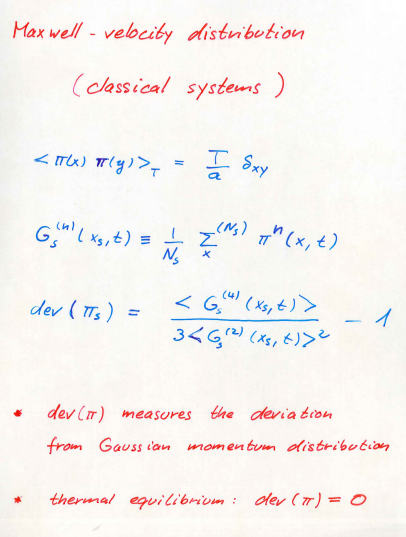 Maxwell - velocity distribution
(classical systems)
<π(x) π(y)>_T = T/a δ_xy
G_s^(n)(x_s,t) ≡ 1/N_s Σ_x^(N_s) π^n(x,t)
dev(π_s) = <G_s^(4)(x_s,t)> / 3<G_s^(2)(x_s,t)>^2 - 1
* dev(π) measures the deviation
from Gaussian momentum distribution
* thermal equilibrium: dev(π) = 0